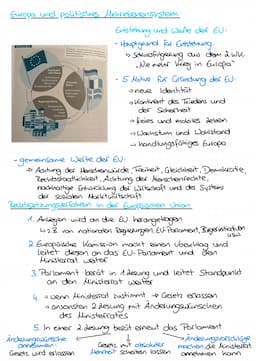 Europa und politisches Mehrebenensystem
Entstehung und Werte der EU:
- Hauptgrund für Entstehung:
↳ Schlussfolgerung aus dem 2. WK
„Nie mehr Krieg in Europa"
- 5 Motive für Gründung der EU:
→ neue Identität
→ Kontinent des Friedens und
der Sicherheit
→ freies und mobiles Leben
→ Wachstum und Wohlstand
→ handlungsfähiges Europa
- gemeinsame Werte der EU:
↳ Achtung der Menschenwürde, Freiheit, Gleichheit, Demokratie,
Rechtsstaatlichkeit, Achtung der Menschenrechte,
nachhaltige Entwicklung der Wirtschaft und des Systems
der sozialen Marktwirtschaft
Rechtsetzungsverfahren in der Europäischen Union
1. Anliegen wird an die EU herangetragen
↳ z.B. von nationalen Regierungen, EU Parlament, Bürgerinitiativen
usw.
2. Europäische Kommission macht einen Vorschlag und
leitet diesen an das EU-Parlament und den
Ministerrat weiter
3. Parlament berät in 1. Lesung und leitet Standpunkt
an den Ministerrat weiter
4. → wenn Ministerrat zustimmt → Gesetz erlassen
→ ansonsten 2. Lesung mit Änderungswünschen
des Ministerrates
5. In einer 2. Lesung berät erneut das Parlament
Änderungswünsche annehmen:
Gesetz wird erlassen
Gesetz mit absoluter
Mehrheit scheitern lassen
Änderungsvorschläge
machen die Ministerrat
annehmen kann